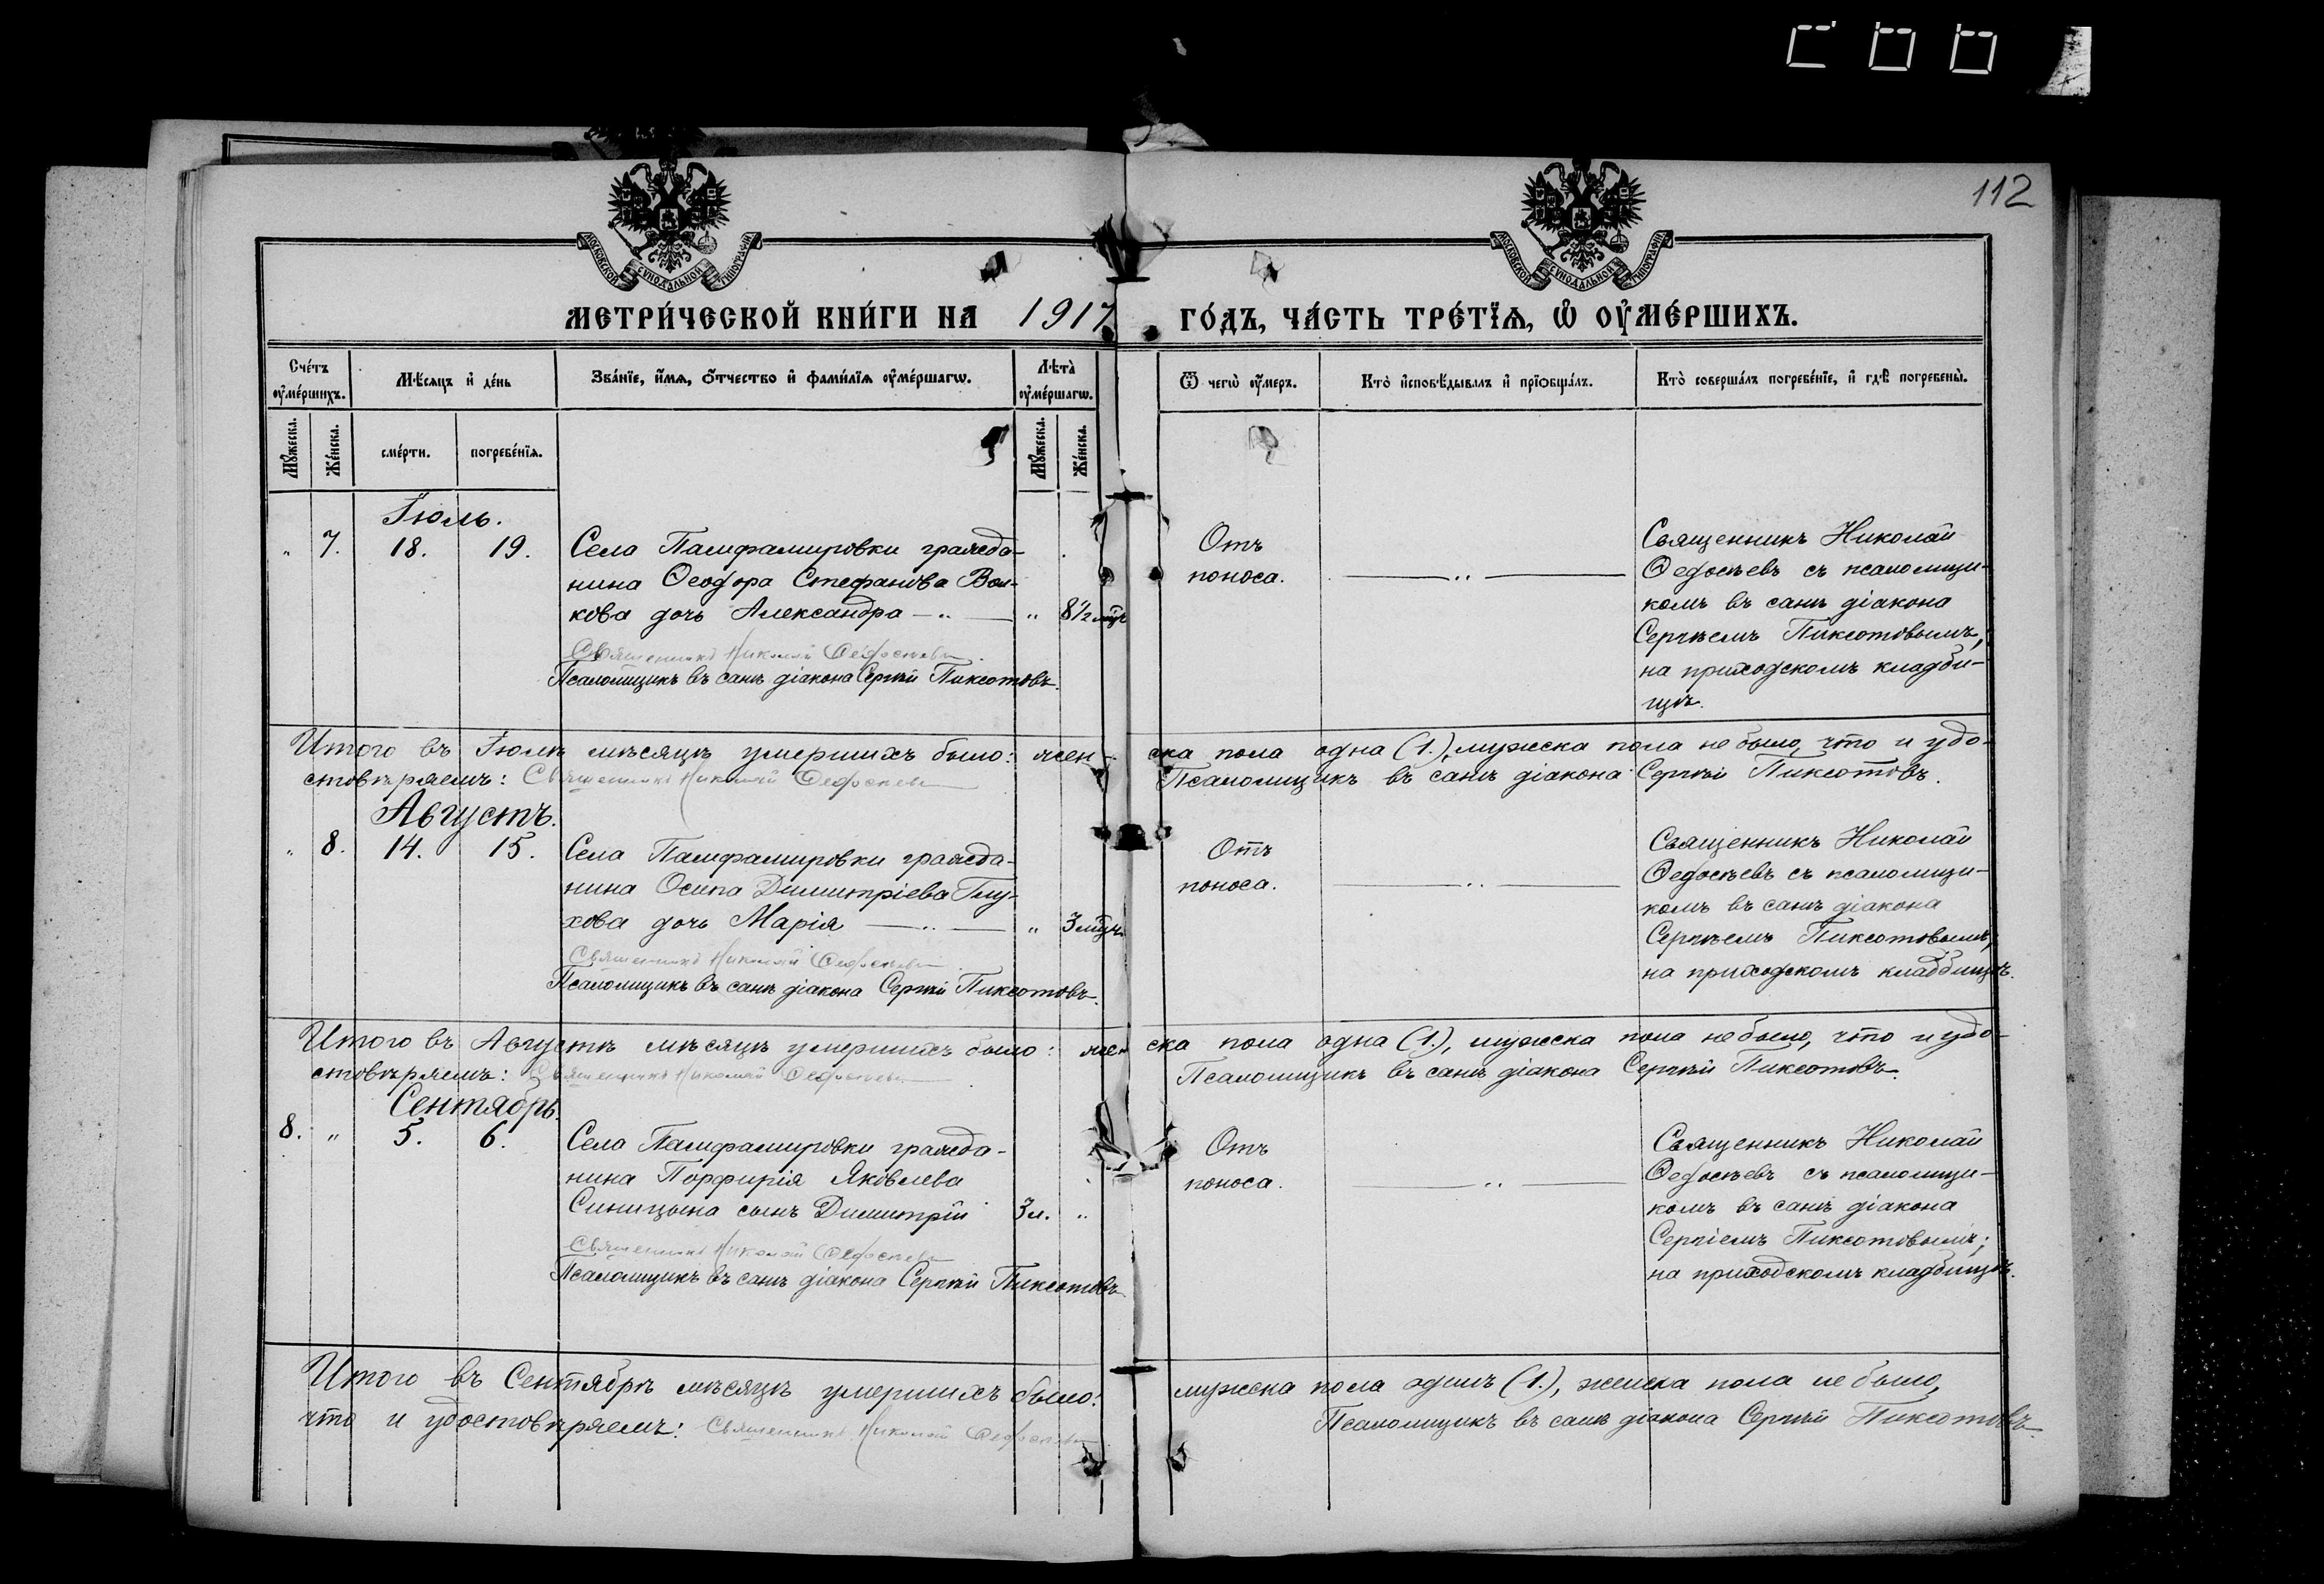 112
МОСКОВСКОЙ СУНОДАЛЬНОЙ ТИПОГРАФІИ
МОСКОВСКОЙ СУНОДАЛЬНОЙ ТИПОГРАФІИ
МЕТРИ́ЧЕСКОЙ КНИ́ГИ НА 1917 ГО́ДЪ, ЧА́СТЬ ТРЕ́ТЇѦ, Ѡ҆ ОУ҆МЕ́РШИХЪ.
Сче́тъ оу҆ме́ршихъ.
Мѣ́сѧцъ и҆ де́нь
Зва́нїе, и҆́мѧ, ѻ҆́тчество и҆ фами́лїѧ оу҆ме́ршагѡ.
Лѣ́та оу҆ме́ршагѡ.
Ѿ чегѡ̀ оу҆́меръ.
Кто̀ и҆сповѣ́дывалъ и҆ прїѻбща́лъ.
Кто̀ соверша́лъ погребе́нїе, и҆ гдѣ̀ погребены̀.
Мꙋ́жеска.
Же́нска.
сме́рти.
погребе́нїѧ.
Мꙋ́жеска.
Же́нска.
Іюль.
" 7. 18. 19. Села Памфамировки гражда-
нина Ѳеодора Стефанова Вол-
кова дочь Александра — " — " 8½ мѣс
Священникъ Николай Ѳедосѣевъ
Псаломщикъ въ санѣ діакона Сергѣй Пиксотовъ.
Отъ
поноса.
— " —
Священникъ Николай
Ѳедосѣевъ съ псаломщи-
комъ въ санѣ діакона
Сергѣемъ Пиксотовымъ,
на приходскомъ кладби-
щѣ.
Итого въ Іюлѣ мѣсяцѣ умершихъ было: жен- ска пола одна (1.), мужска пола не было, что и удо-
стовѣряемъ: Священникъ Николай Ѳедосѣевъ Псаломщикъ въ санѣ діакона Сергѣй Пиксотовъ.
Августъ.
" 8. 14. 15. Села Памфамировки гражда-
нина Осипа Димитріева Глу-
хова дочь Марія — " — " 3 мѣс.
Священникъ Николай Ѳедосѣевъ
Псаломщикъ въ санѣ діакона Сергѣй Пиксотовъ.
Отъ
поноса.
— " —
Священникъ Николай
Ѳедосѣевъ съ псаломщи-
комъ въ санѣ діакона
Сергѣемъ Пиксотовымъ,
на приходскомъ кладбищѣ.
Итого въ Августѣ мѣсяцѣ умершихъ было: жен ска пола одна (1.), мужска пола не было, что и удо-
стовѣряемъ: Священникъ Николай Ѳедосѣевъ Псаломщикъ въ санѣ діакона Сергѣй Пиксотовъ.
Сентябрь.
8. " 5. 6. Села Памфамировки гражда-
нина Порфирія Яковлева
Синицына сынъ Димитрій 3 л. "
Священникъ Николай Ѳедосѣевъ
Псаломщикъ въ санѣ діакона Сергѣй Пиксотовъ
Отъ
поноса.
— " —
Священникъ Николай
Ѳедосѣевъ съ псаломщи-
комъ въ санѣ діакона
Сергіемъ Пиксотовымъ;
на приходскомъ кладбищѣ.
Итого въ Сентябрѣ мѣсяцѣ умершихъ было: мужска пола одинъ (1.), женска пола не было,
что и удостовѣряемъ: Священникъ Николай Ѳедосѣевъ Псаломщикъ въ санѣ діакона Сергѣй Пиксотовъ.